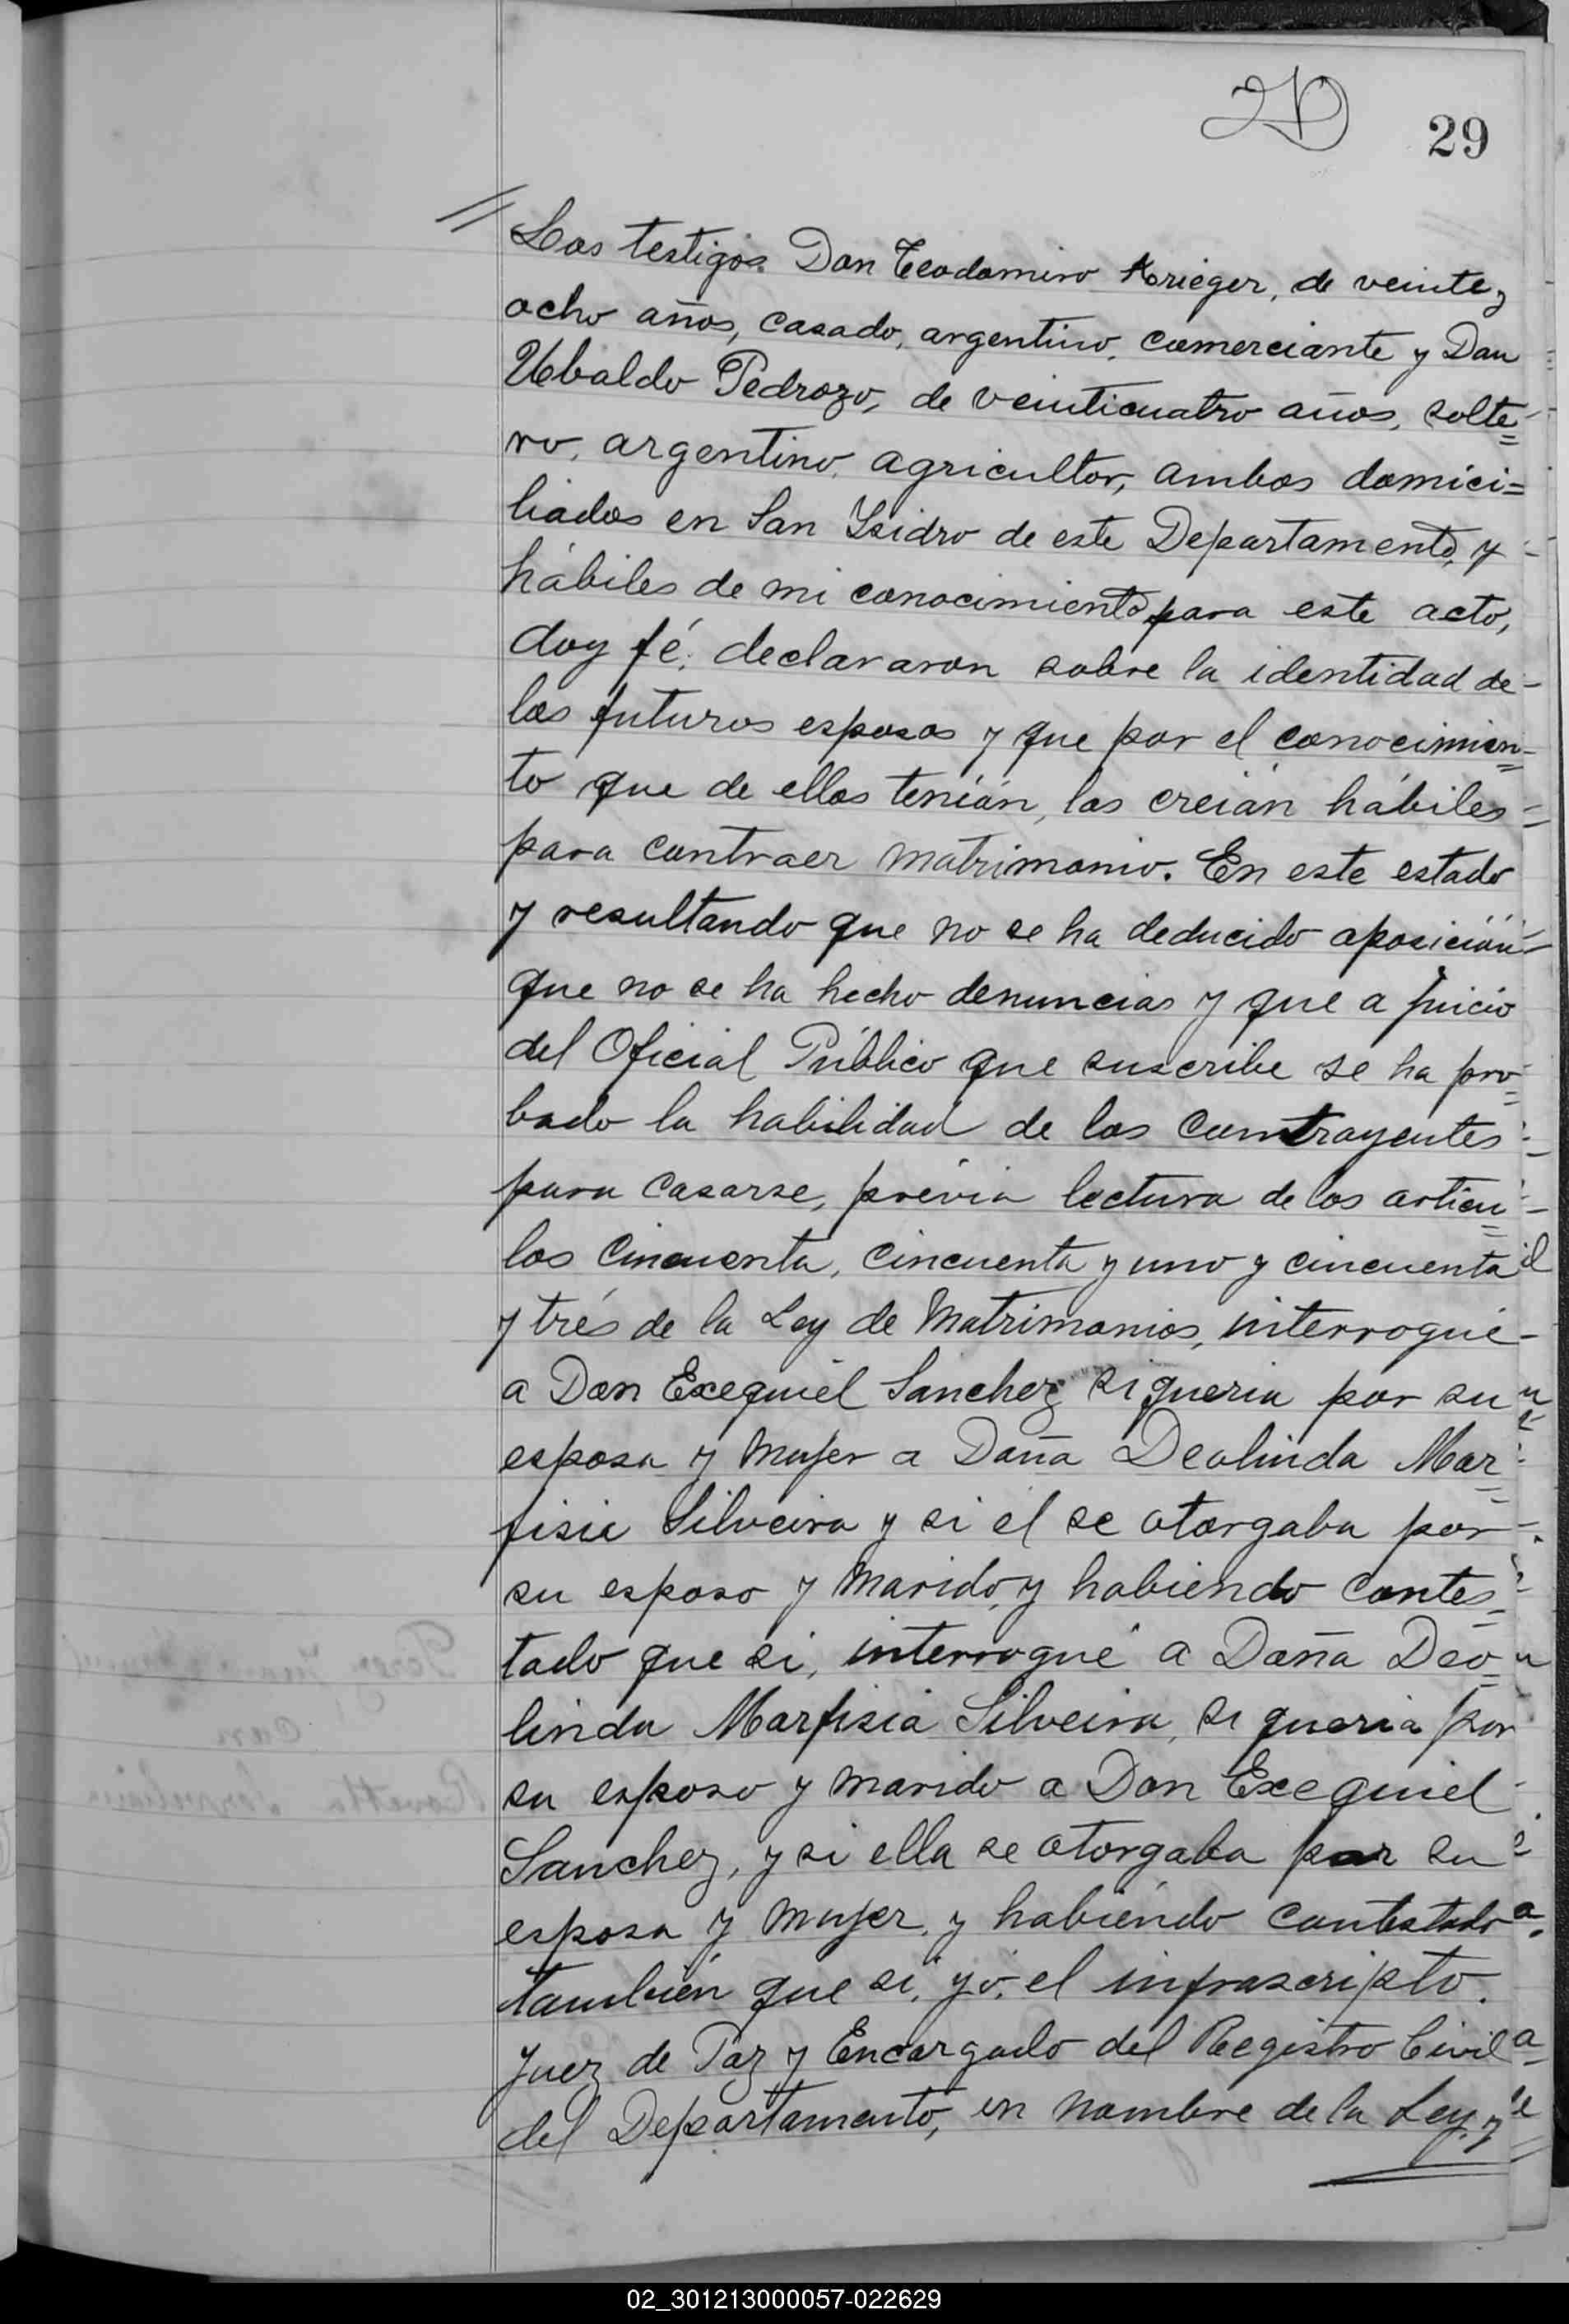 29
Los testigos Don Teodomiro Krieger, de veinte y
ocho años, casado, argentino, comerciante y Don
Ubaldo Pedrozo, de veinticuatro años, solte=
ro, argentino, agricultor, ambos domici=
liados en San Isidro de este Departamento, y
hábiles de mi conocimiento para este acto,
doy fé; declararon sobre la identidad de
los futuros esposos y que por el conocimien=
to que de ellos tenián, los creián hábiles
para contraer matrimonio. En este estado
y resultando que no se ha deducido oposición
que no se ha hecho denuncias y que a juicio
del Oficial Público que suscribe se ha pro=
bado la habilidad de los contrayentes
para casarse, prévia lectura de los articu=
los cincuenta, cincuenta y uno y cincuenta
y trés de la Ley de Matrimonios, interrogué
a Don Exequiel Sanchez si queria por su
esposa y mujer a Doña Deolinda Mar=
fisia Silveira y si él se otorgaba por
su esposo y marido, y habiendo contes=
tado que si, interrogué a Doña Deo=
linda Marfisia Silveira, si queria por
su esposo y marido a Don Exequiel
Sanchez, y si ella se otorgaba por su
esposa y mujer, y habiéndo contestado
también que si, yó, el infrascripto.
Juez de Paz y Encargado del Registro Civil
del Departamento, en nombre de la Ley, y
02_301213000057-022629